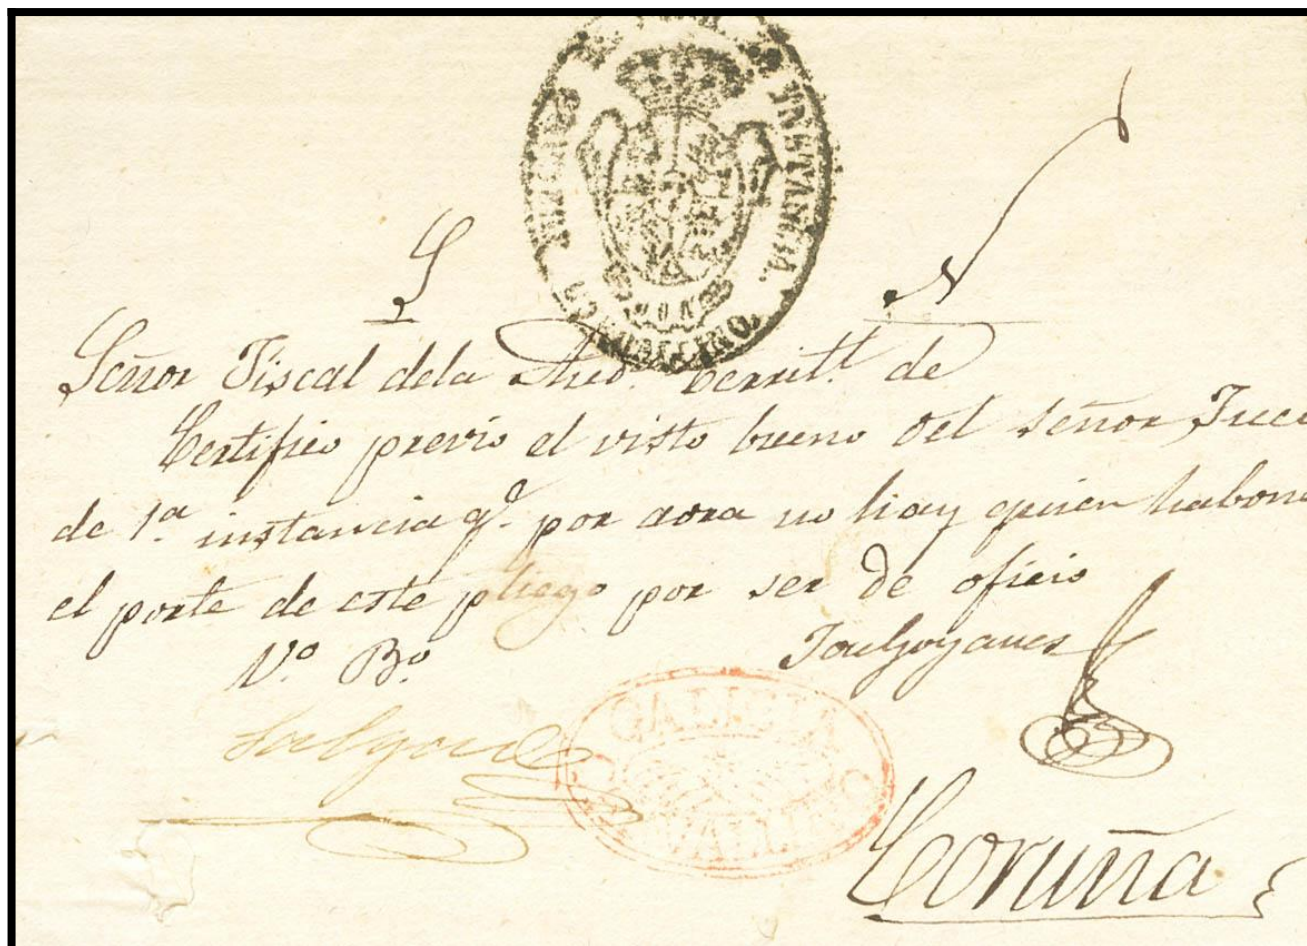 S N
Señor Fiscal dela Aud.ª territ.l de
Certifico previo el visto bueno del señor Juez
de 1ª. instancia q.e por aora no hay quien habone
el porte de este pliego por ser de oficio
Vº. Bº.
Salgado
GALICIA
Coruña